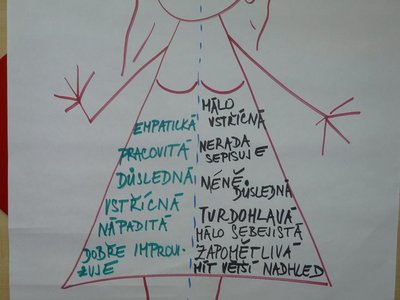 EMPATICKÁ
PRACOVITÁ
DŮSLEDNÁ
VSTŘÍCNÁ
NÁPADITÁ
DOBŘE IMPROVI-
ZUJE
MÁLO
VSTŘÍCNÁ
NERADA
SEPISUJE
MÉNĚ
DŮSLEDNÁ
TVRDOHLAVÁ
MÁLO SEBEJISTÁ
ZAPOMĚTLIVÁ
MÍT VĚTŠÍ NADHLED